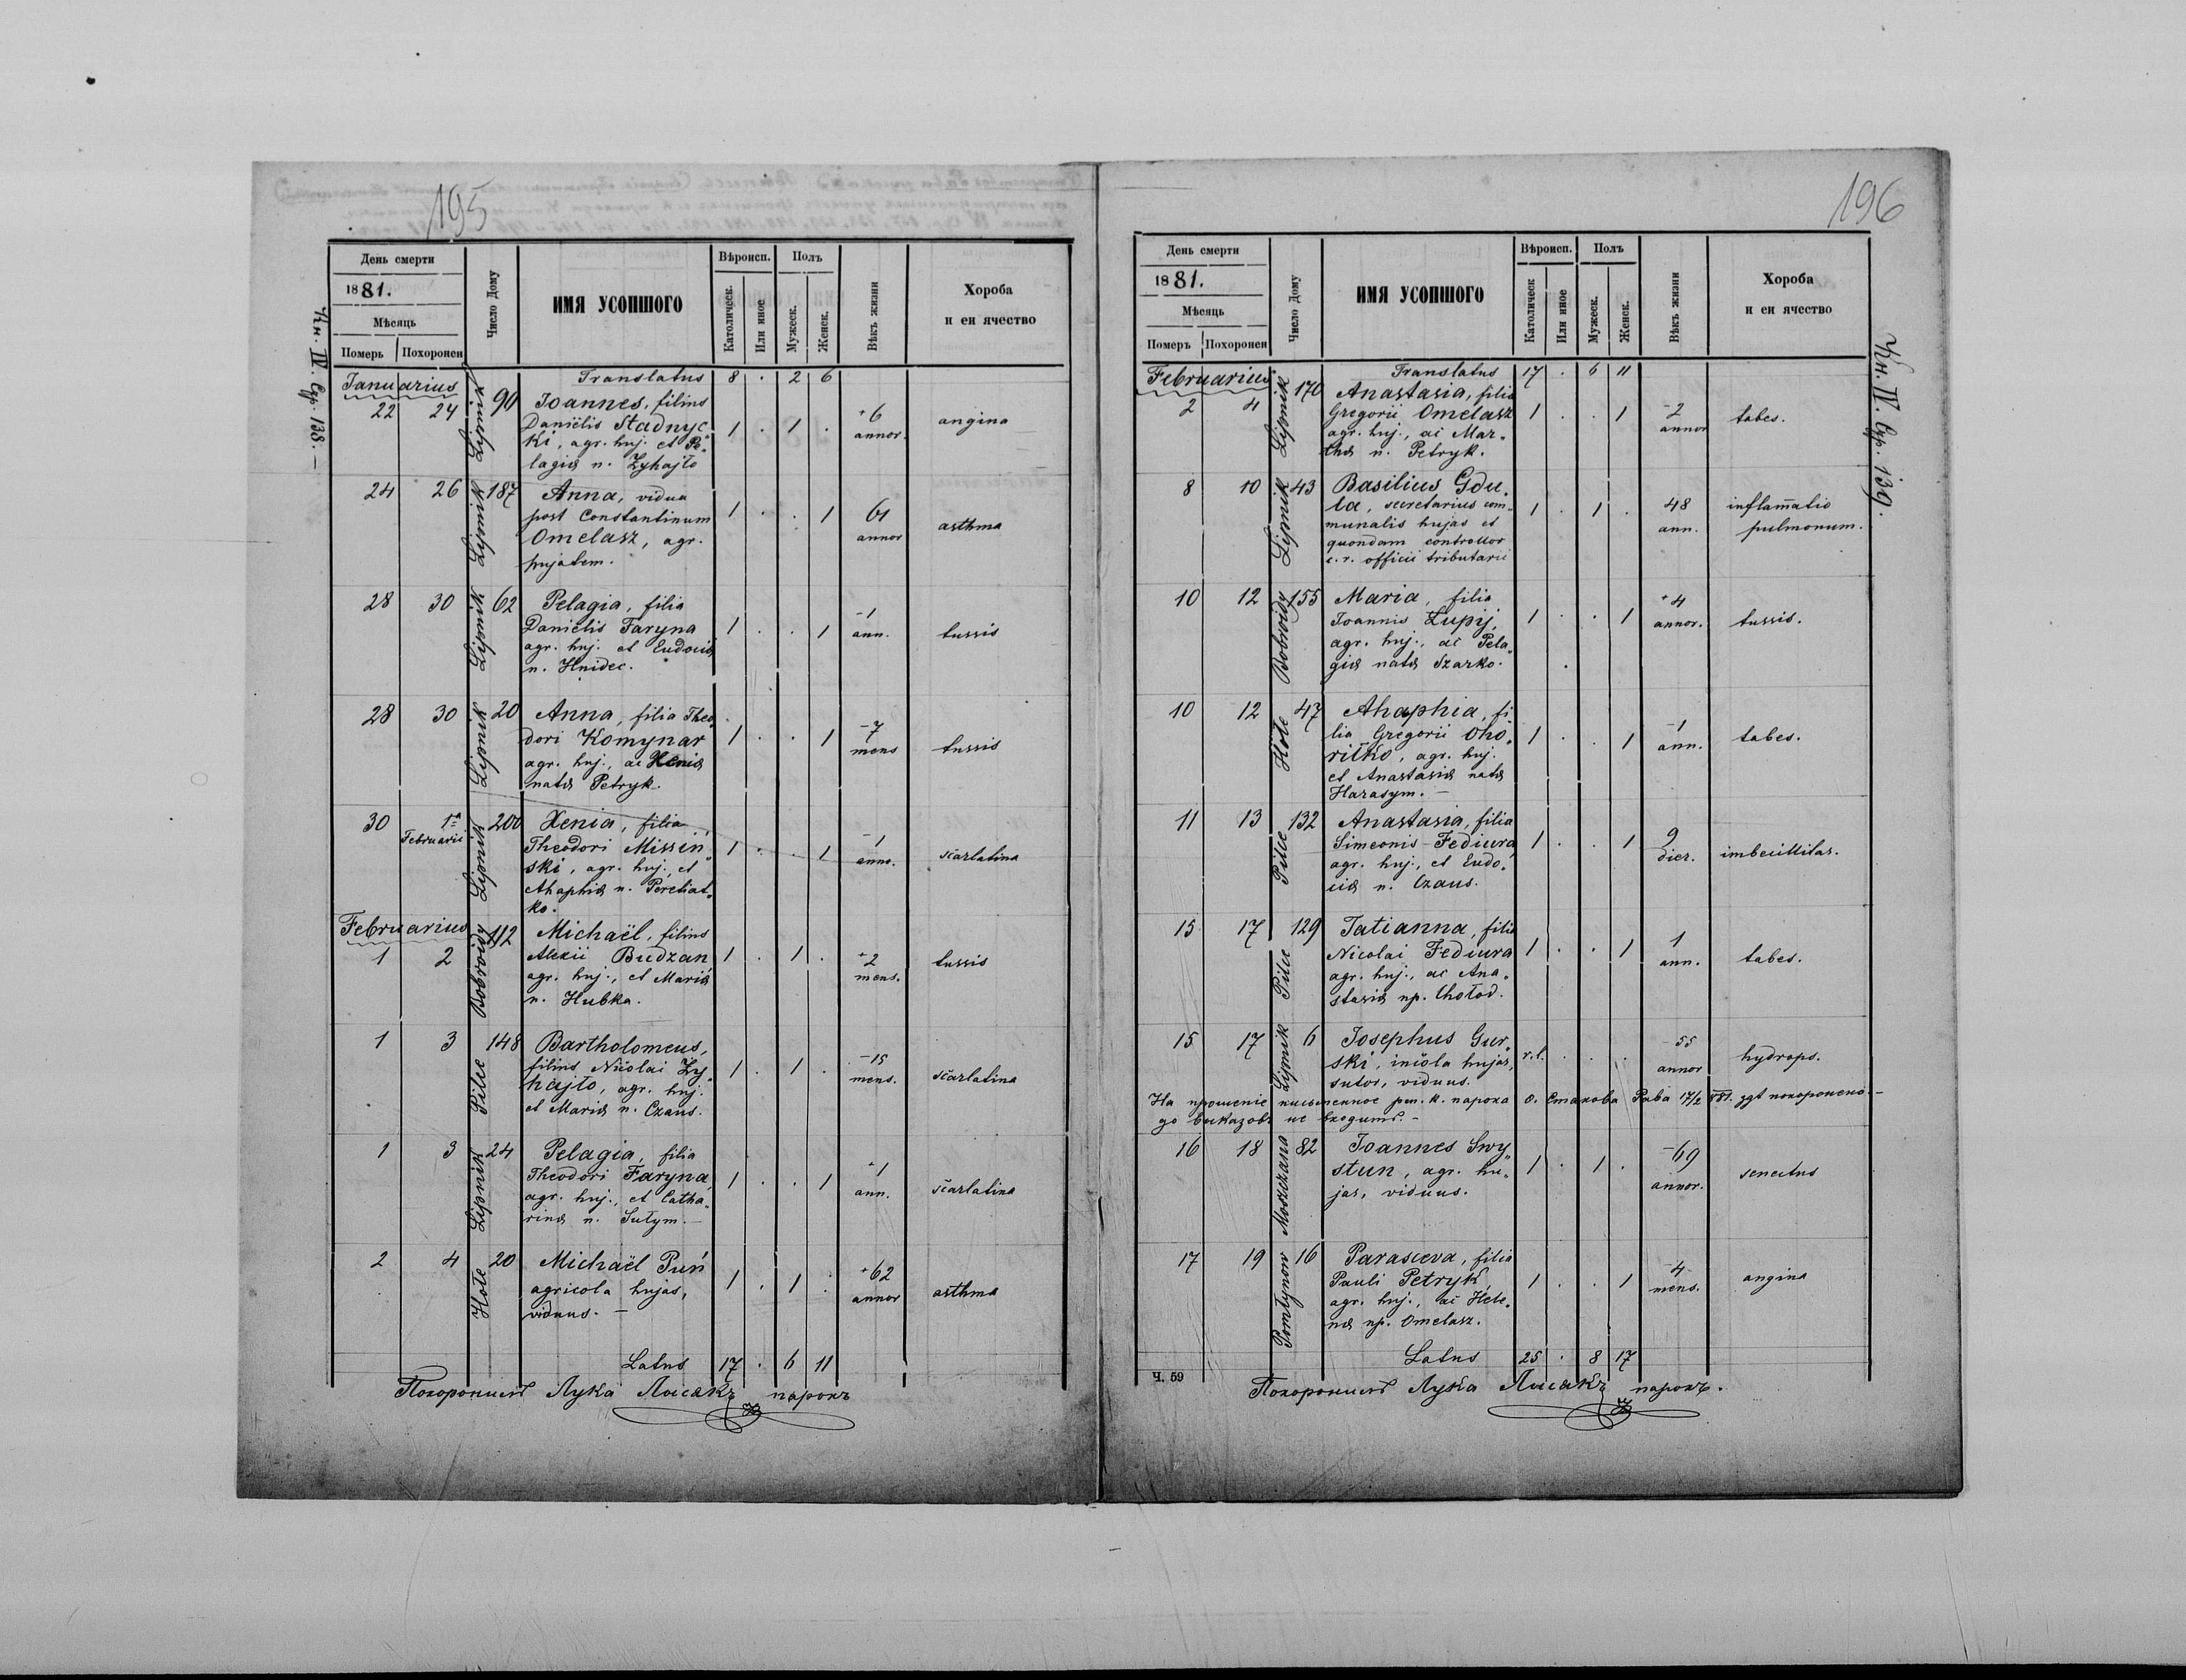 195
День смерти
1881.
Мѣсяць
Померъ Похоронен
Число Дому
ИМЯ УСОПШОГО
Вѣроисп.
Католическ.
Или иное
Полъ
Мужеск.
Женск.
Вѣкъ жизни
Хороба
и еи ячество
Кн. IV. Стр. 138. —
Januarius
Translatus 8 . 2 6
22 24 Lipnik 90 Joannes, filius
Daniëlis Stadnyc„
ki, agr. huj. et Pe„
lagiæ n. Żyhajło
1 . 1 . +6
annor.
angina
24 26 Lipnik 187 Anna, vidua
post Constantinum
Omelasz, agr.
hujatem.
1 . . 1 61
annor
asthma
28 30 Lipnik 62 Pelagia, filia
Daniëlis Faryna
agr. huj. et Eudociæ
n. Hnidec.
1 . . 1 –1
ann.
tussis
28 30 Lipnik 20 Anna, filia Theo„
dori Komynar
agr. huj., ac Xeniæ
natæ Petryk.
1 . . 1 –7
mens
tussis
30 1a
Februarii
Lipnik 200 Xenia, filia
Theodori Missiń„
ski, agr. huj., et
Ahaphiæ n. Peretiat„
ko.
1 . . 1 –1
anno.
scarlatina
Februarius
1 2 Bobroidy 112 Michaël, filius
Alexii Budzan
agr. huj., et Mariæ
n. Hubka.
1 . 1 . +2
mens.
tussis
1 3 Pilce 148 Bartholomeus,
filius Nicolai Ży„
hajło, agr. huj.
et Mariæ n. Czaus.
1 . 1 . –15
mens.
scarlatina
1 3 Lipnik 24 Pelagia, filia
Theodori Faryna,
agr. huj., et Catha„
rinæ n. Sułym.—
1 . . 1 +1
ann.
scarlatina
2 4 Hole 20 Michaël Puń
agricola hujas,
viduus. —
1 . 1 . +62
annor
asthma
Latus 17 . 6 11
Похоронилъ Лука Лисакъ парохъ
196
День смерти
1881.
Мѣсяць
Померъ Похоронен
Число Дому
ИМЯ УСОПШОГО
Вѣроисп.
Католическ
Или иное
Полъ
Мужеск.
Женск.
Вѣкъ жизни
Хороба
и еи ячество
Кн. IV. Стр. 139.
Februarius
Translatus 17 . 6 11
2 4 Lipnik 170 Anastasia, filia
Gregorii Omelasz
agr. huj., ac Mar„
thæ n. Petryk.
1 . . 1 –2
annor
tabes.
8 10 Lipnik 43 Basilius Gdu„
la, secretarius com„
munalis hujas et
quondam controllor
c. r. officii tributarii
1 . 1 . 48
ann.
inflam̄atio
pulmonum.
10 12 Bobroidy 155 Maria, filia
Joannis Łupij,
agr. huj., ac Pela„
giæ natæ Szarko.
1 . . 1 +4
annor.
tussis.
10 12 Hole 47 Ahaphia, fi„
lia Gregorii Oho„
riłko, agr. huj.
et Anastasiæ natæ
Harasym. —
1 . . 1 –1
ann.
tabes.
11 13 Pilce 132 Anastasia, filia
Simeonis Fediura,
agr. huj., et Eudo„
ciæ n. Czaus.
1 . . 1 9
dier.
imbecillitas.
15 17 Pilce 129 Tatianna, filia
Nicolai Fediura
agr. huj., ac Ana„
stasiæ np. Chołod.
1 . . 1 1
ann.
tabes.
15 17 Lipnik 6 Josephus Gur„
ski, incola hujas,
sutor, viduus.
r.l. . . . –55
annor
hydrops.
На прошеніе письменное рим. к. пароха о. Стахова Рава 17/2 881. ту похоронено —
до выказовъ не входитъ. —
16 18 Moszczana 82 Joannes Swy„
stun, agr. hu„
jas, viduus.
1 . 1 . –69
annor.
senectus
17 19 Pomłynow 16 Parasceva, filia
Pauli Petryk,
agr. huj., ac Hele„
næ np. Omelasz.
1 . . 1 –4
mens.
angina
Latus 25 . 8 17
Ч. 59
Похоронилъ Лука Лисакъ парохъ.